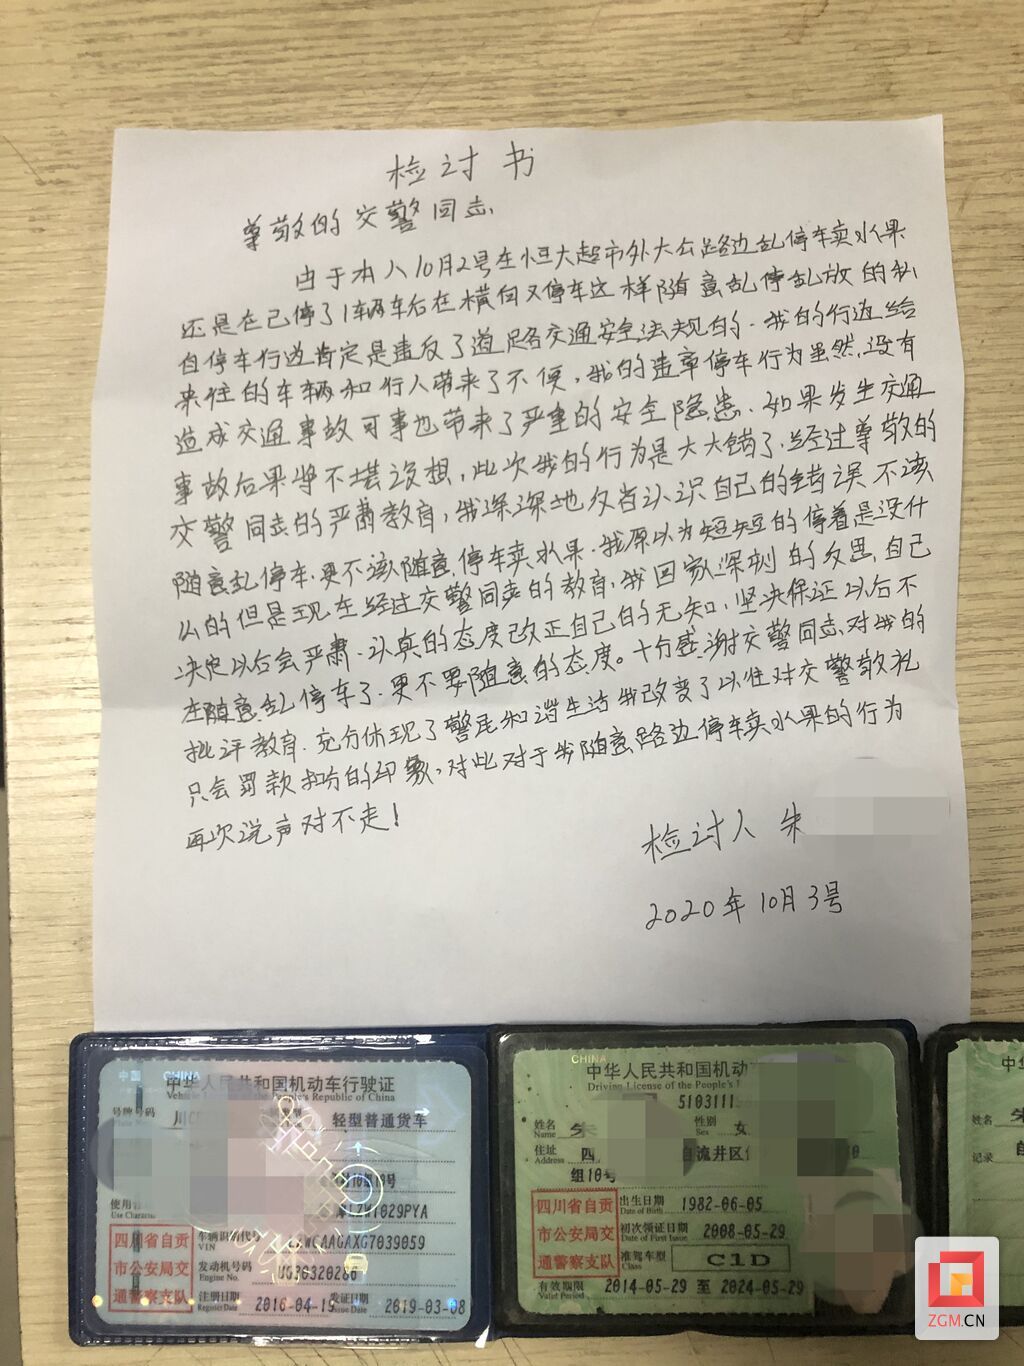 检讨书
尊敬的交警同志、
由于本人10月2号在恒大超市外大公路边乱停车卖水果
还是在已停了1辆车后在横向又停车这样随意乱停乱放的私
自停车行为肯定是违反了道路交通安全法规的.我的行为给
来往的车辆和行人带来了不便,我的违章停车行为虽然没有
造成交通事故可事也带来了严重的安全隐患.如果发生交通
事故后果将不堪设想,此次我的行为是大大错了.经过尊敬的
交警同志的严肃教育,我深深地反省认识自己的错误不该
随意乱停车.更不该随意停车卖水果.我原以为短短的停着是没什
么的但是现在经过交警同志的教育,我回家深刻的反思,自己
决定以后会严肃.认真的态度改正自己的无知,坚决保证以后不
在随意乱停车了.更不要随意的态度。十分感谢交警同志对我的
批评教育.充分体现了警民和谐生活我改变了以往对交警敬礼
只会罚款扣分的印象,对此对于我随意路边停车卖水果的行为
再次说声对不走!
检讨人 朱
2020年10月3号
中国 CHINA
中华人民共和国机动车行驶证
Vehicle License of the People's Republic of China
号牌号码 轻型普通货车
10号
使用
Use Character
车辆识别代号
VIN
发动机号码
Engine No.
注册日期 2016-04-19 发证日期 2019-03-08
Register Date Issue Date
四川省自贡
市公安局交
通警察支队
CHINA
中华人民共和国机动
Driving License of the People's
5103111
姓名 朱 性别 女
Name Sex
住址 四 自流井区
Address
组10号
出生日期 1982-06-05
Date of Birth
初次领证日期 2008-05-29
Date of First Issue
准驾车型 C1D
Class
有效期限 2014-05-29 至 2024-05-29
Valid Period
四川省自贡
市公安局交
通警察支队
中华
姓名 朱
Name
记录
ZGM.CN